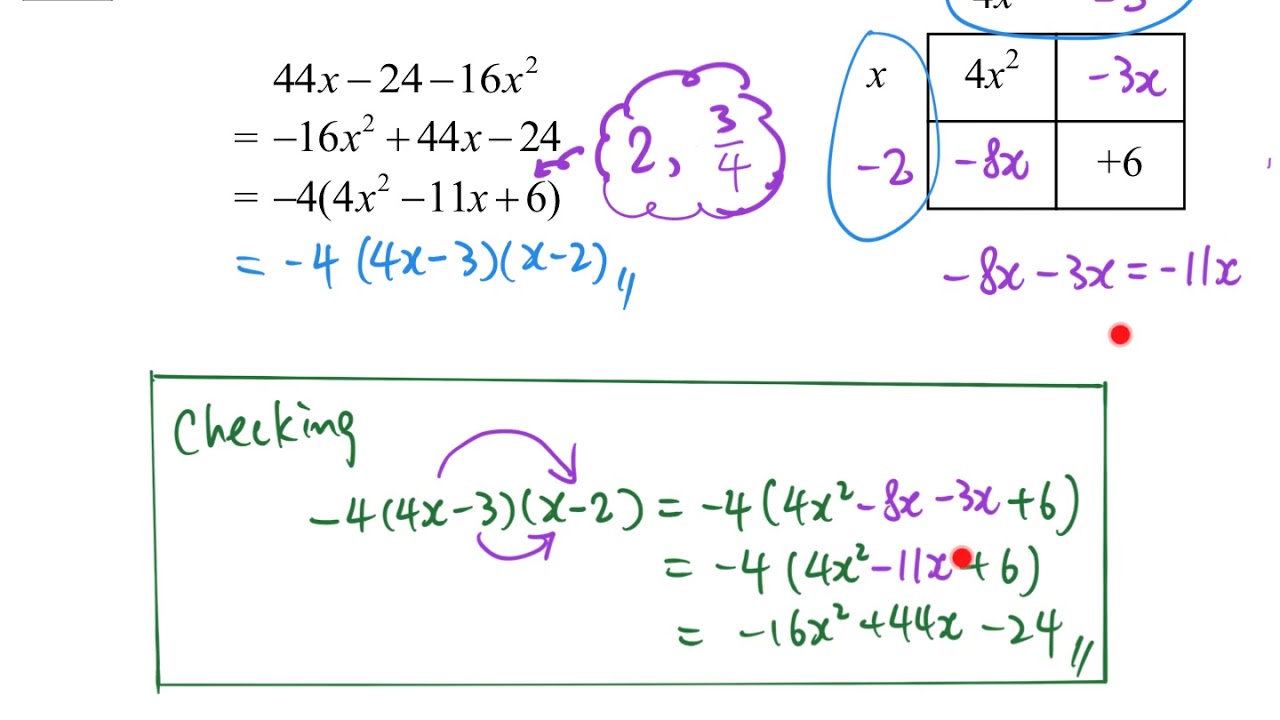 44x − 24 − 16x²
= −16x² + 44x − 24
= −4(4x² − 11x + 6)
= −4 (4x−3)(x−2)
2, 3/4
4x −3
x 4x² −3x
−2 −8x +6
−8x − 3x = −11x
Checking
−4(4x−3)(x−2) = −4(4x² − 8x − 3x + 6)
= −4 (4x² − 11x + 6)
= −16x² + 44x − 24